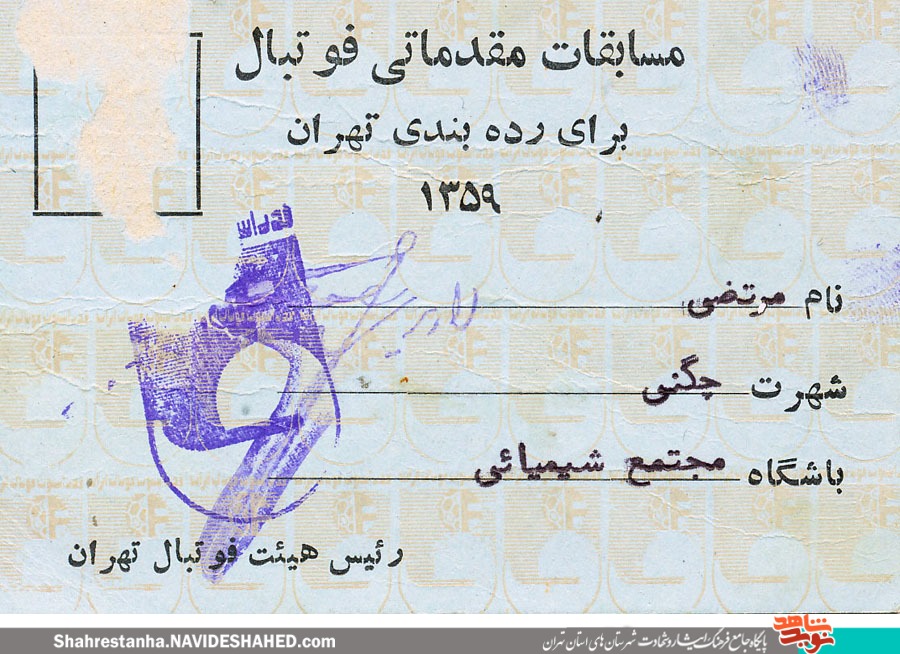 مسابقات مقدماتی فوتبال
برای رده بندی تهران
۱۳۵۹
نام مرتضی
شهرت چگنی
باشگاه مجتمع شیمیائی
رئیس هیئت فوتبال تهران
Shahrestanha.NAVIDESHAHED.com
پایگاه جامع فرهنگ ایثار و شهادت شهرستان های استان تهران
نوید شاهد